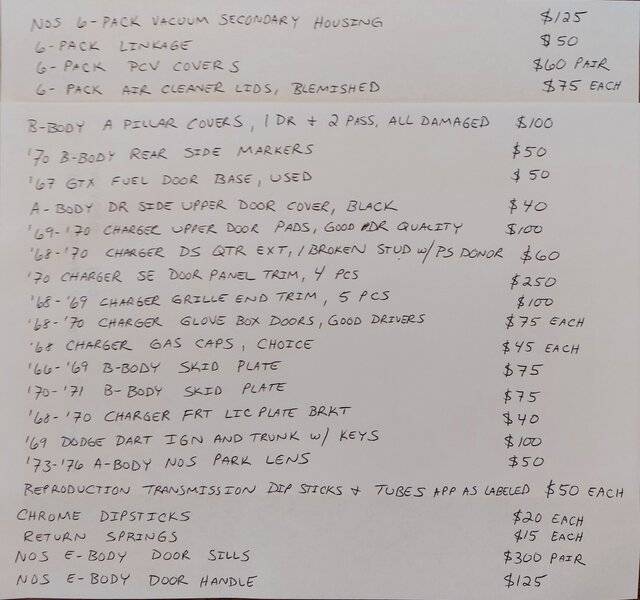 NOS 6-PACK VACUUM SECONDARY HOUSING $125
6-PACK LINKAGE $50
6-PACK PCV COVERS $60 PAIR
6-PACK AIR CLEANER LIDS, BLEMISHED $75 EACH
B-BODY A PILLAR COVERS, 1 DR + 2 PASS, ALL DAMAGED $100
'70 B-BODY REAR SIDE MARKERS $50
'67 GTX FUEL DOOR BASE, USED $50
A-BODY DR SIDE UPPER DOOR COVER, BLACK $40
'69-'70 CHARGER UPPER DOOR PADS, GOOD DR QUALITY $100
'68-'70 CHARGER DS QTR EXT, 1 BROKEN STUD w/PS DONOR $60
'70 CHARGER SE DOOR PANEL TRIM, 4 PCS $250
'68-'69 CHARGER GRILLE END TRIM, 5 PCS $100
'68-'70 CHARGER GLOVE BOX DOORS, GOOD DRIVERS $75 EACH
'68 CHARGER GAS CAPS, CHOICE $45 EACH
'66-'69 B-BODY SKID PLATE $75
'70-'71 B-BODY SKID PLATE $75
'68-'70 CHARGER FRT LIC PLATE BRKT $40
'69 DODGE DART IGN AND TRUNK w/ KEYS $100
'73-'76 A-BODY NOS PARK LENS $50
REPRODUCTION TRANSMISSION DIP STICKS + TUBES APP AS LABELED $50 EACH
CHROME DIPSTICKS $20 EACH
RETURN SPRINGS $15 EACH
NOS E-BODY DOOR SILLS $300 PAIR
NOS E-BODY DOOR HANDLE $125